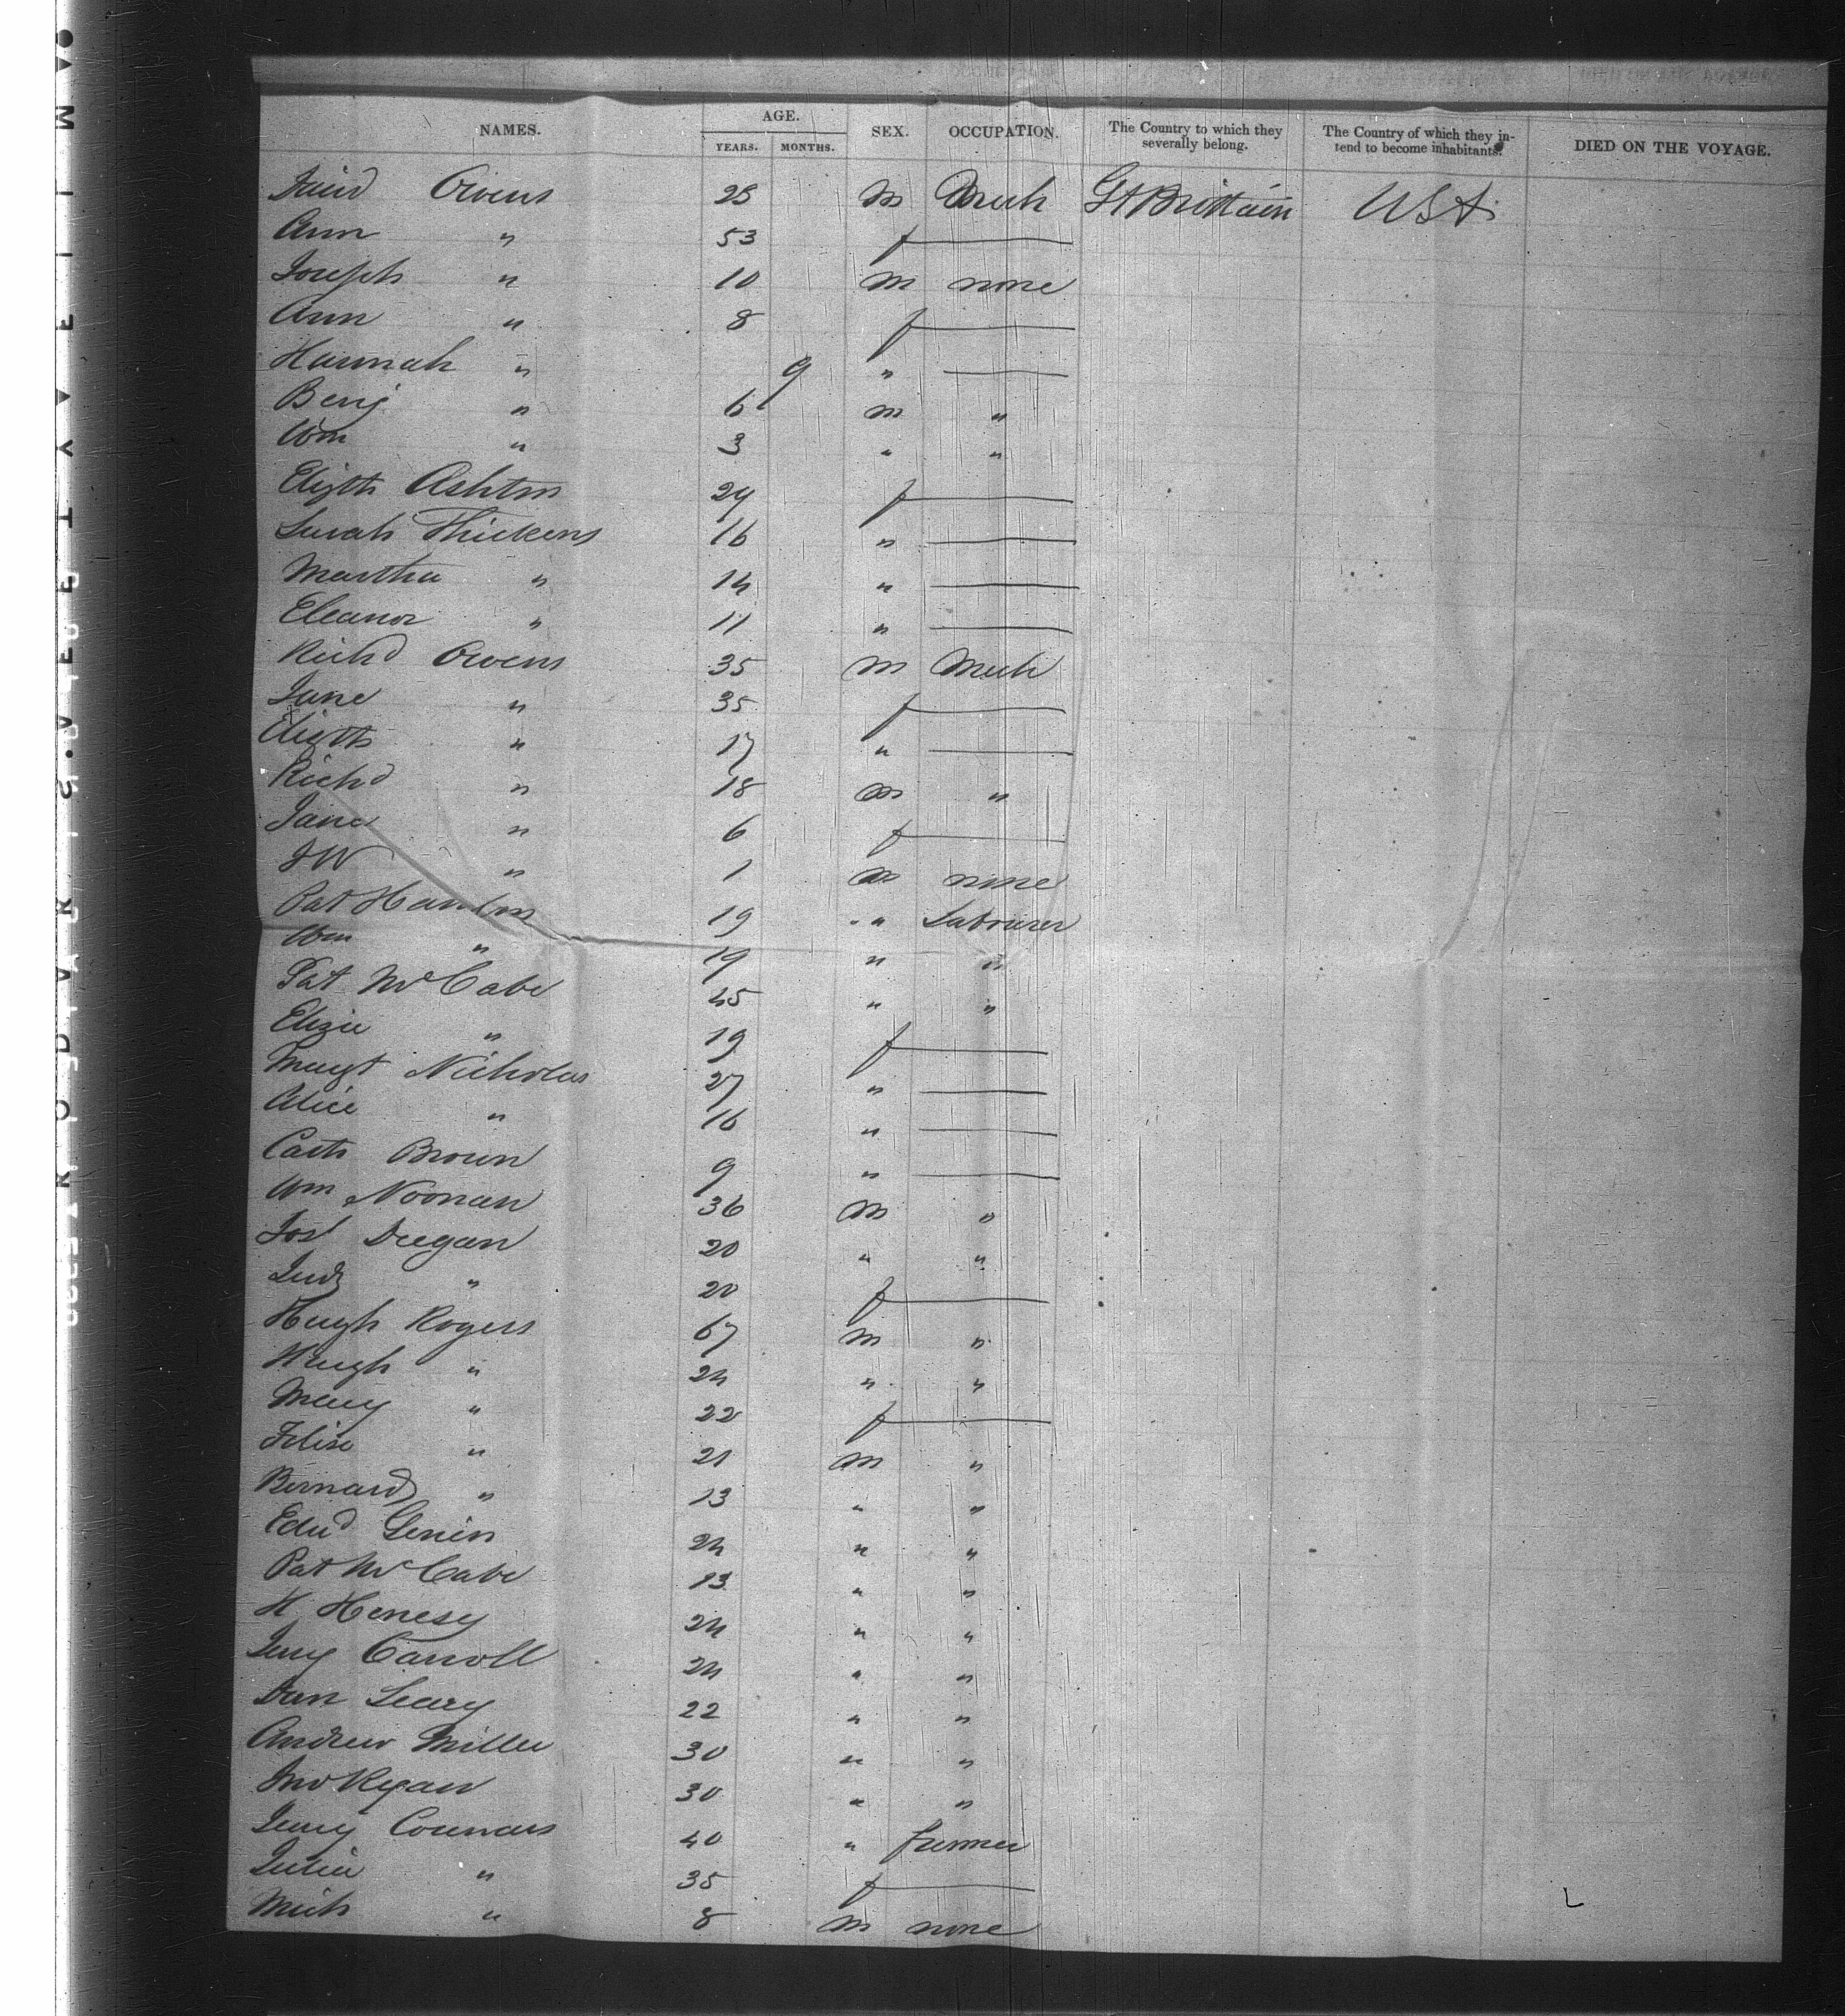 NAMES. AGE. SEX. OCCUPATION. The Country to which they severally belong. The Country of which they intend to become inhabitants. DIED ON THE VOYAGE.
YEARS. MONTHS.
David Owens 28 m Mech Gt Brittain USA
Ann " 53 f
Joseph " 10 m none
Ann " 8 f
Hannah " 9 "
Benj " 6 m "
Wm " 3 " "
Elizth Ashton 29 f
Sarah Thickens 16 "
Martha " 14 "
Eleanor " 11 "
Richd Owens 35 m Mech
Jane " 35 f
Elizth " 17 "
Richd " 18 m "
Jane " 6 f
J W " 1 m none
Pat Hanlon 19 " Labourer
Wm " 19 " "
Pat McCabe 45 " "
Elizie " 19 f
Margt Nicholas 27 "
Alice " 16 "
Cath Brown 9 "
Wm Noonan 36 m "
Jos Deegan 20 " "
Judy " 20 f
Hugh Rogers 67 m "
Hugh " 24 " "
Mary " 22 f
" 21 m "
Bernard " 13 " "
Edwd 24 " "
Pat McCabe 13 " "
H Henesy 24 " "
Jerry Carroll 24 " "
Dan Leary 22 " "
Andrew Miller 30 " "
Jno Ryan 30 " "
Jerry Connors 40 " farmer
Julia " 35 f
Mich " 8 m none